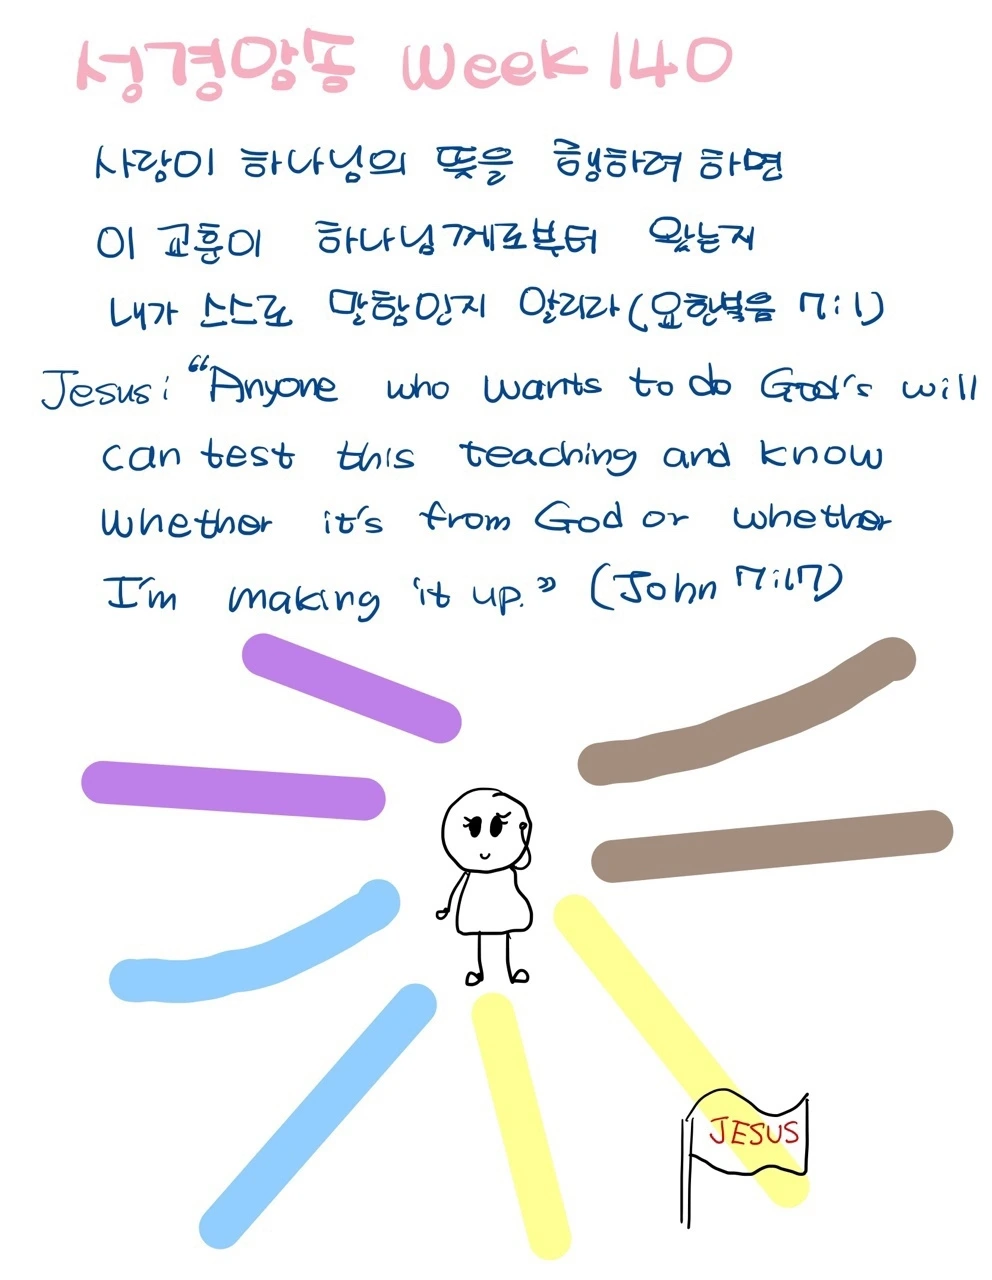 성경암송 Week 140
사람이 하나님의 뜻을 행하려 하면
이 교훈이 하나님께로부터 왔는지
내가 스스로 말함인지 알리라 (요한복음 7:1)
Jesus: “Anyone who wants to do God's will
can test this teaching and know
whether it's from God or whether
I'm making it up.” (John 7:17)
JESUS